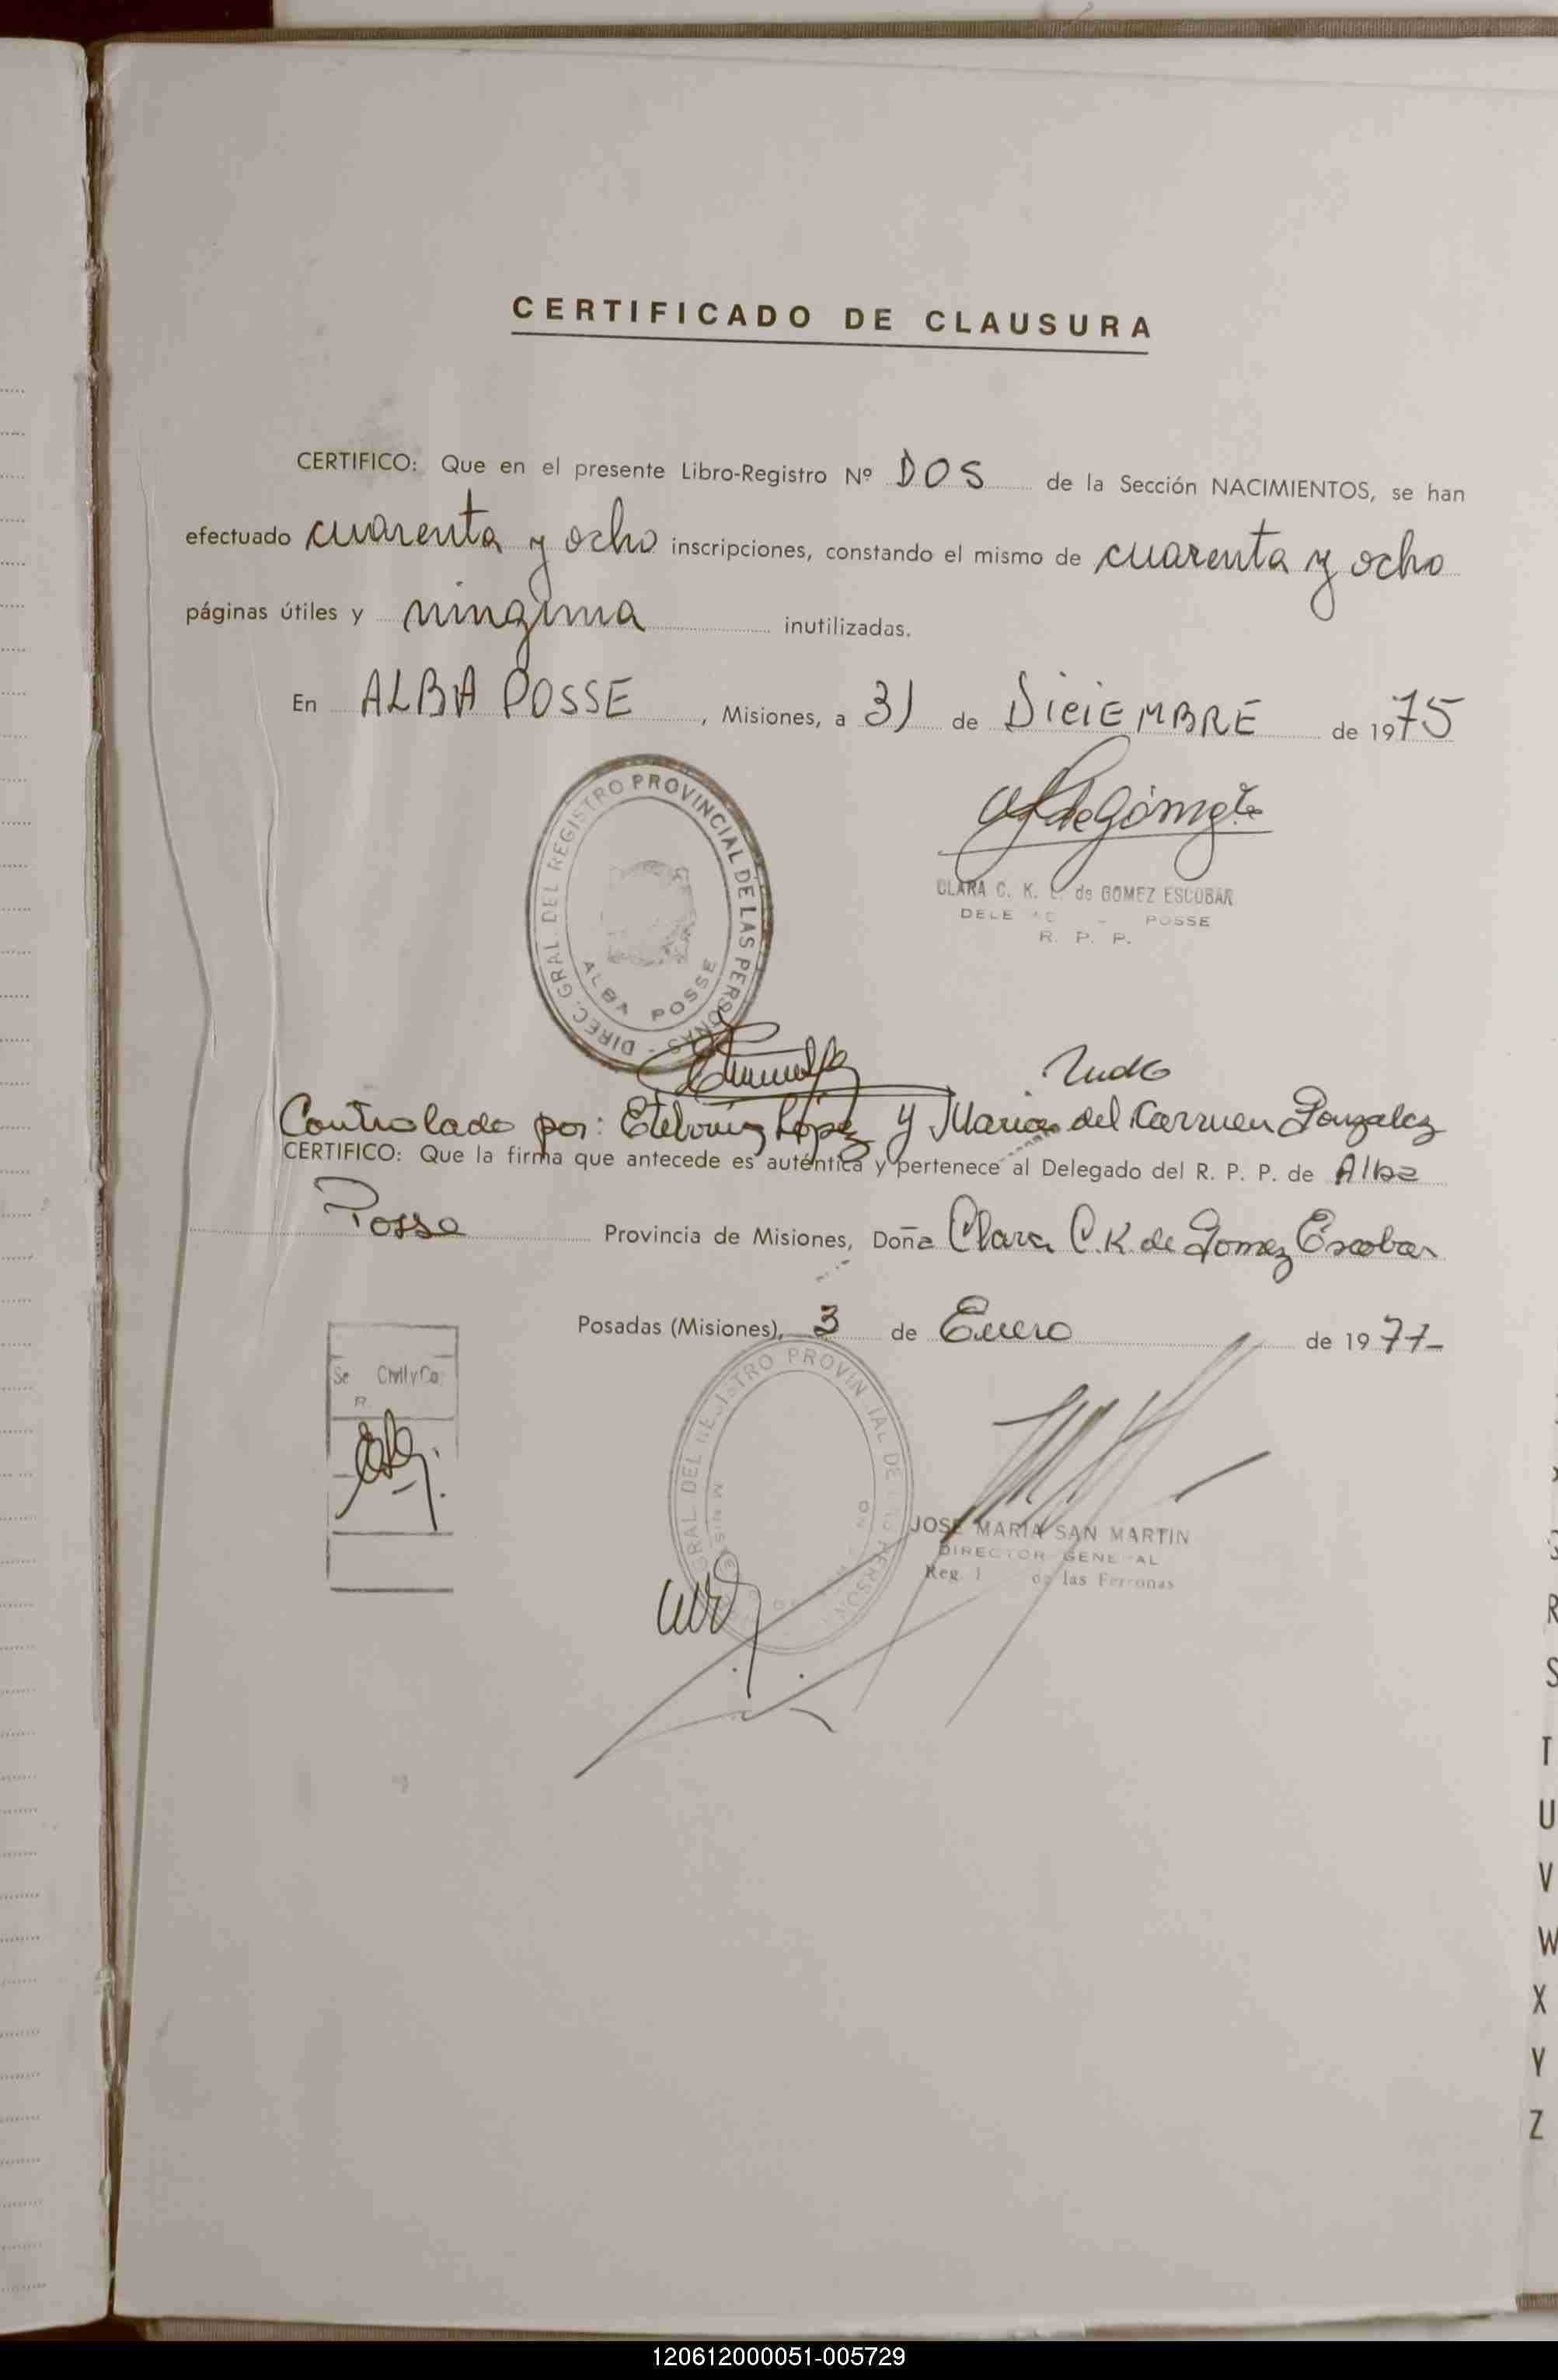 CERTIFICADO DE CLAUSURA
CERTIFICO: Que en el presente Libro-Registro Nº DOS de la Sección NACIMIENTOS, se han
efectuado cuarenta y ocho inscripciones, constando el mismo de cuarenta y ocho
páginas útiles y ninguna inutilizadas.
En ALBA POSSE, Misiones, a 31 de DICIEMBRE de 1975
DIREC. GRAL. DEL REGISTRO PROVINCIAL DE LAS PERSONAS -
ALBA POSSE
CLARA C. K. L. de GOMEZ ESCOBAR
POSSE
R. P. P.
Controlado por: López y Maria del Carmen Gonzalez
CERTIFICO: Que la firma que antecede es auténtica y pertenece al Delegado del R. P. P. de Alba
Posse Provincia de Misiones, Doña Clara C. K. de Gomez Escobar
Posadas (Misiones), 3 de Enero de 1977-
Civil y
R.
GRAL. DEL REGISTRO PROVINCIAL DE LAS PERSON
JOSE MARIA SAN MARTIN
DIRECTOR GENERAL
Reg. de las Personas
R
S
T
U
V
W
X
Y
Z
120612000051-005729